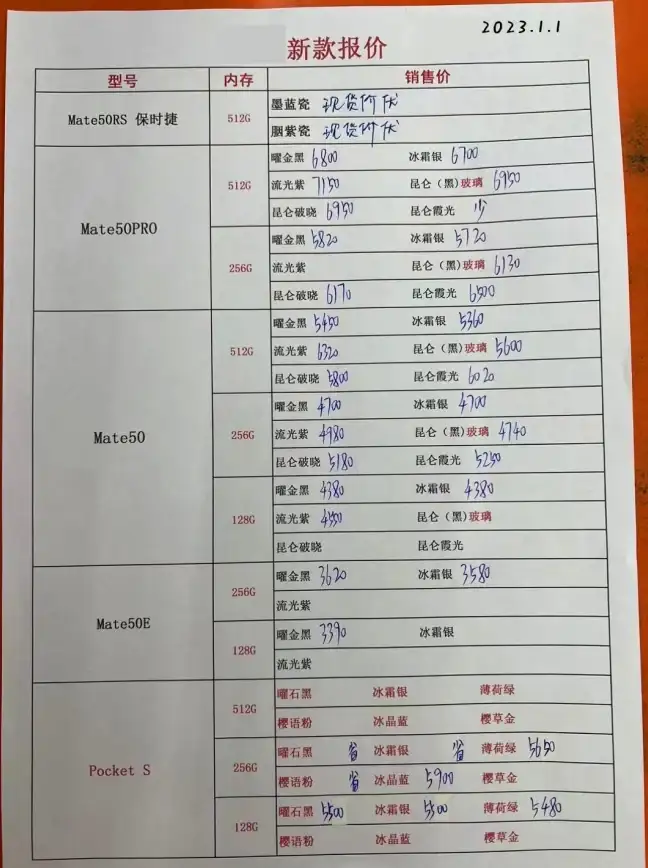 2023.1.1
新款报价
型号 内存 销售价
Mate50RS 保时捷 512G 墨蓝瓷 现货价优
胭紫瓷 现货价优
Mate50PRO 512G 曜金黑 6800 冰霜银 6700
流光紫 7150 昆仑（黑）玻璃 6950
昆仑破晓 6950 昆仑霞光 少
256G 曜金黑 5820 冰霜银 5720
流光紫 昆仑（黑）玻璃 6130
昆仑破晓 6170 昆仑霞光 6500
Mate50 512G 曜金黑 5450 冰霜银 5360
流光紫 6320 昆仑（黑）玻璃 5600
昆仑破晓 5800 昆仑霞光 6020
256G 曜金黑 4700 冰霜银 4700
流光紫 4980 昆仑（黑）玻璃 4740
昆仑破晓 5180 昆仑霞光 5250
128G 曜金黑 4380 冰霜银 4380
流光紫 4550 昆仑（黑）玻璃
昆仑破晓 昆仑霞光
Mate50E 256G 曜金黑 3620 冰霜银 3580
流光紫
128G 曜金黑 3390 冰霜银
流光紫
Pocket S 512G 曜石黑 冰霜银 薄荷绿
樱语粉 冰晶蓝 樱草金
256G 曜石黑 省 冰霜银 省 薄荷绿 5650
樱语粉 省 冰晶蓝 5900 樱草金
128G 曜石黑 5500 冰霜银 5500 薄荷绿 5480
樱语粉 冰晶蓝 樱草金